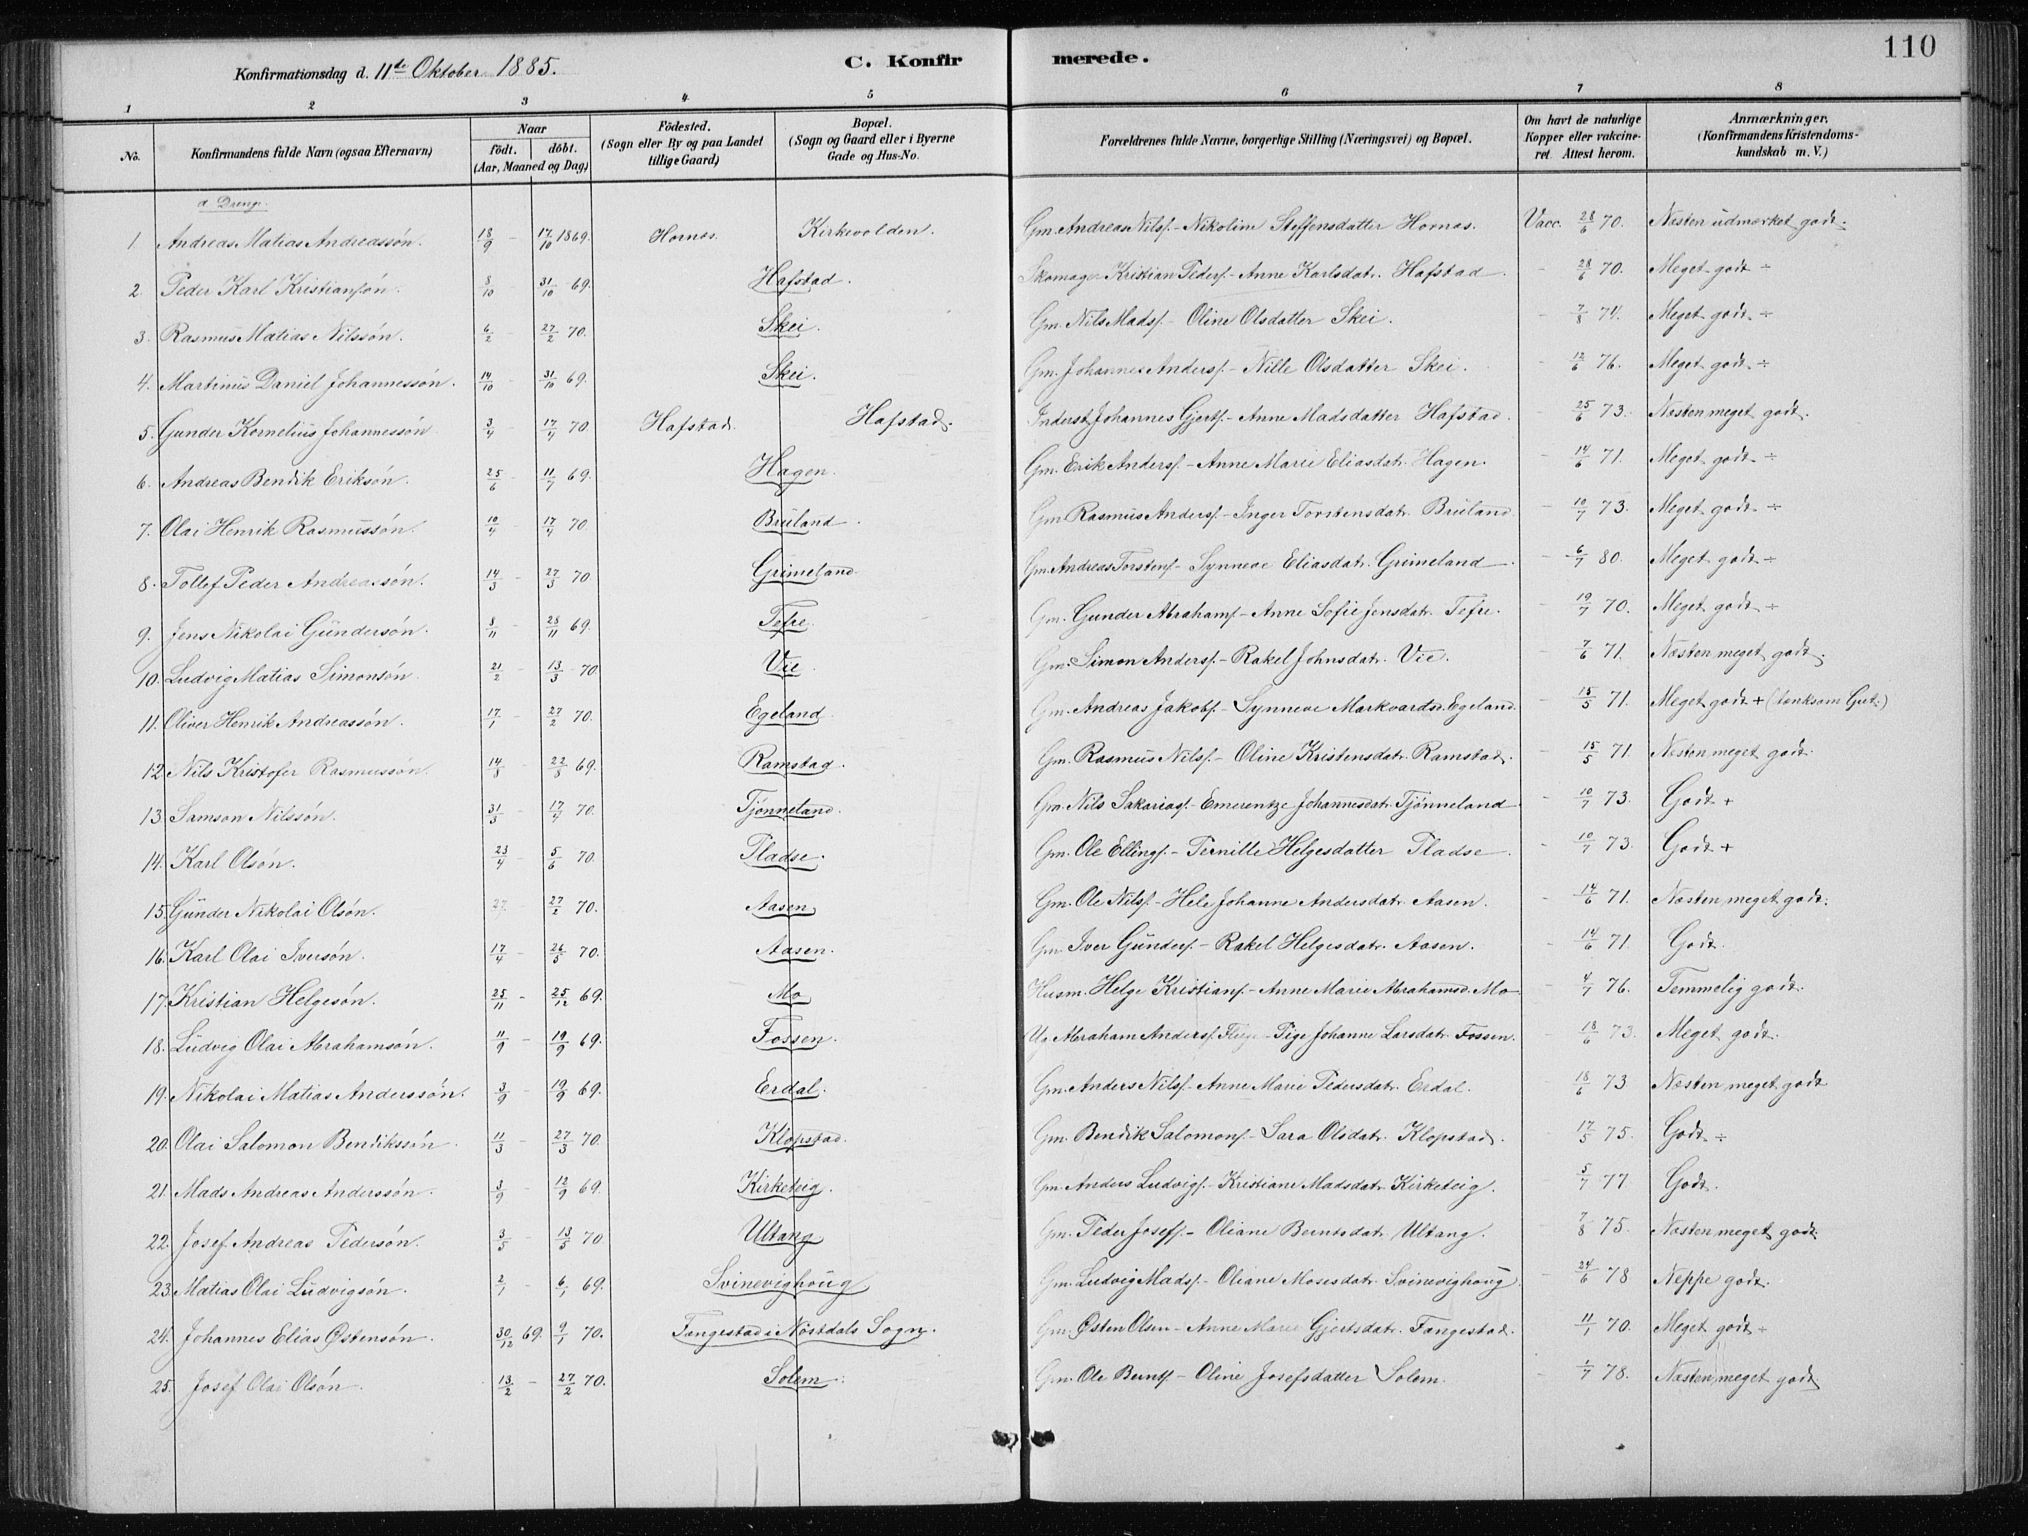 110
Konfirmationsdag d. 11te Oktober 1885. C. Konfirmerede.
1 2 3 4 5 6 7 8
No. Konfirmandens fulde Navn (ogsaa Efternavn) Naar födt. döbt. (Aar, Maaned og Dag) Födested. (Sogn eller By og paa Landet tillige Gaard) Bopæl. (Sogn og Gaard eller i Byerne Gade og Hus-No. Forældrenes fulde Navne, borgerlige Stilling (Næringsvei) og Bopæl. Om havt de naturlige Kopper eller vakcineret. Attest herom. Anmærkninger. (Konfirmandens Kristendomskundskab m. V.)
a Drenge.
1. Andreas Matias Andreassön. 18/9 - 17/10 1869. Hornas. Kirkevolden. Gm. Andreas Nilss. - Nikoline Steffensdatter Hornas. Vacc. 28/6 70. Næsten udmærket godt.
2. Peder Karl Kristiansön. 8/10 - 31/10 69. Hafstad. Skomager Kristian Peders. - Anne Karlsdatr. Hafstad - 28/6 70. Meget godt ÷
3. Rasmus Matias Nilssön. 6/2 - 27/2 70. Skei. Gm. Nils Madss. - Oline Olsdatter Skei. - 7/8 74. Meget godt ÷
4. Martinus Daniel Johannessön. 14/10 - 31/10 69. Skei. Gm. Johannes Anders. - Nille Olsdatter Skei. - 12/6 76. Meget godt ÷
5. Gunder Kornelius Johannessön 3/4 - 17/4 70 Hafstad. Hafstad. Inderst Johannes Gjerts. - Anne Madsdatter Hafstad. - 25/6 73. Næsten meget godt.
6. Andreas Bendik Eriksön. 25/6 - 11/7 69. Hagen. Gm. Erik Anders. - Anne Marie Eliasdatr. Hagen. - 14/6 71. Meget godt ÷
7. Olai Henrik Rasmussön. 10/4 - 17/4 70 Bruland. Gm. Rasmus Anders. - Inger Torstensdatr. Bruland. - 10/7 73. Meget godt ÷
8. Tollef Peder Andreassön. 14/3 - 27/3 70 Grimeland Gm. Andreas Torstens. - Synneve Eliasdatr. Grimeland - 6/7 80. Meget godt ÷
9. Jens Nikolai Gundersön. 8/11 - 28/11 69. Tefre. Gm. Gunder Abrahams. - Anne Sofie Jensdatr. Tefre. - 19/7 70. Meget godt ÷
10. Ludvig Matias Simonsön. 21/2 - 13/3 70. Vie. Gm. Simon Anders. - Rakel Johnsdatr. Vie. - 7/6 71. Næsten meget godt.
11. Oliver Henrik Andreassön. 17/1 - 27/2 70. Egeland. Gm. Andreas Jakobs. - Synneve Markvardsr. Egeland. - 15/5 71. Meget godt + (tænksom Gut.)
12. Nils Kristofer Rasmussön. 14/8 - 22/8 69. Ramstad. Gm. Rasmus Nils. - Oline Kristensdatr. Ramstad. - 15/5 71 Næsten meget godt.
13. Samson Nilssön. 31/3 - 17/4 70. Tjönneland. Gm. Nils Sakarias. - Emerentze Johannesdatr. Tjönneland - 10/7 73. Godt +
14. Karl Olsön. 23/4 - 5/6 70. Pladse. Gm. Ole Ellings. - Pernille Helgesdatter Pladse - 10/7 73. Godt +
15. Gunder Nikolai Olsön. 27/2 70. Aasen. Gm. Ole Nils. - Hele Johanne Andersdatr. Aasen. - 14/6 71. Næsten meget godt.
16. Karl Olai Iversön. 17/4 - 26/5 70. Aasen. Gm. Iver Gunders. - Rakel Helgesdatr. Aasen. - 14/6 71. Godt.
17. Kristian Helgesön. 25/11 - 25/12 69. Mo Husm. Helge Kristians. - Anne Marie Abrahamsd. Mo - 4/7 76. Temmelig godt.
18. Ludvig Olai Abrahamsön. 11/9 - 19/9 69. Fossen. Abraham Anders. - Pige Johanne Larsdatr. Fossen. - 18/6 73. Meget godt.
19. Nikolai Matias Anderssön. 3/9 - 19/9 69. Erdal. Gm. Anders Nils. - Anne Marie Pedersdatr. Erdal. - 18/6 73 Næsten meget godt
20. Olai Salomon Bendikssön. 11/3 - 27/3 70. Klopstad. Gm. Bendik Salomons. - Sara Olsdatr. Klopstad. - 17/5 75. Godt ÷
21. Mads Andreas Anderssön. 3/9 - 12/9 69. Kirketeig. Gm. Anders Ludvigs. - Kristiane Madsdatr. Kirketeig. - 5/7 77. Godt.
22. Josef Andreas Pedersön. 3/5 - 13/5 70 Ultang Gm. Peder Josefs. - Oliane Berntsdatr. Ultang. - 7/8 75. Næsten meget godt.
23. Matias Olai Ludvigsön. 2/1 - 6/1 69. Svinevighoug Gm. Ludvig Mads. - Oliane Mosesdatr. Svinevighoug. - 24/6 78 Neppe godt.
24. Johannes Elias Østensön. 30/12 69. 9/1 70. Fangestad i Nöstdals Sogn. Gm. Østen Olsen - Anne Marie Gjertsdatr. Fangestad. - 11/1 70. Meget godt ÷
25. Josef Olai Olsön. 13/2 - 27/2 70. Solem. Gm. Ole Bernts. - Oline Josefsdatter Solem. - 1/7 78. Næsten meget godt.